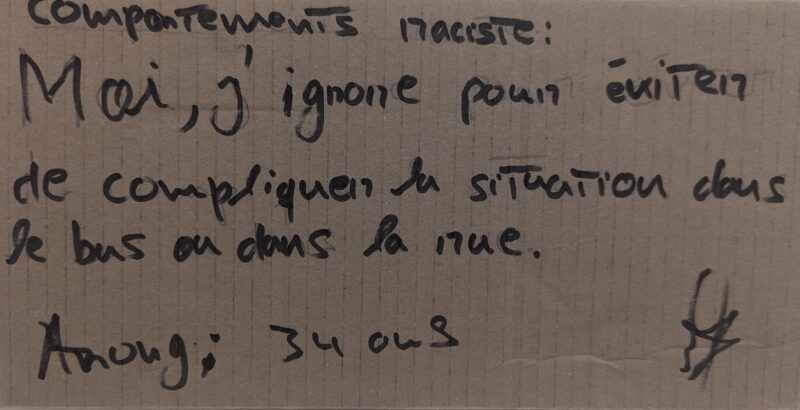 comportements raciste:
Moi, j'ignore pour éviter
de compliquer la situation dans
le bus ou dans la rue.
34 ans